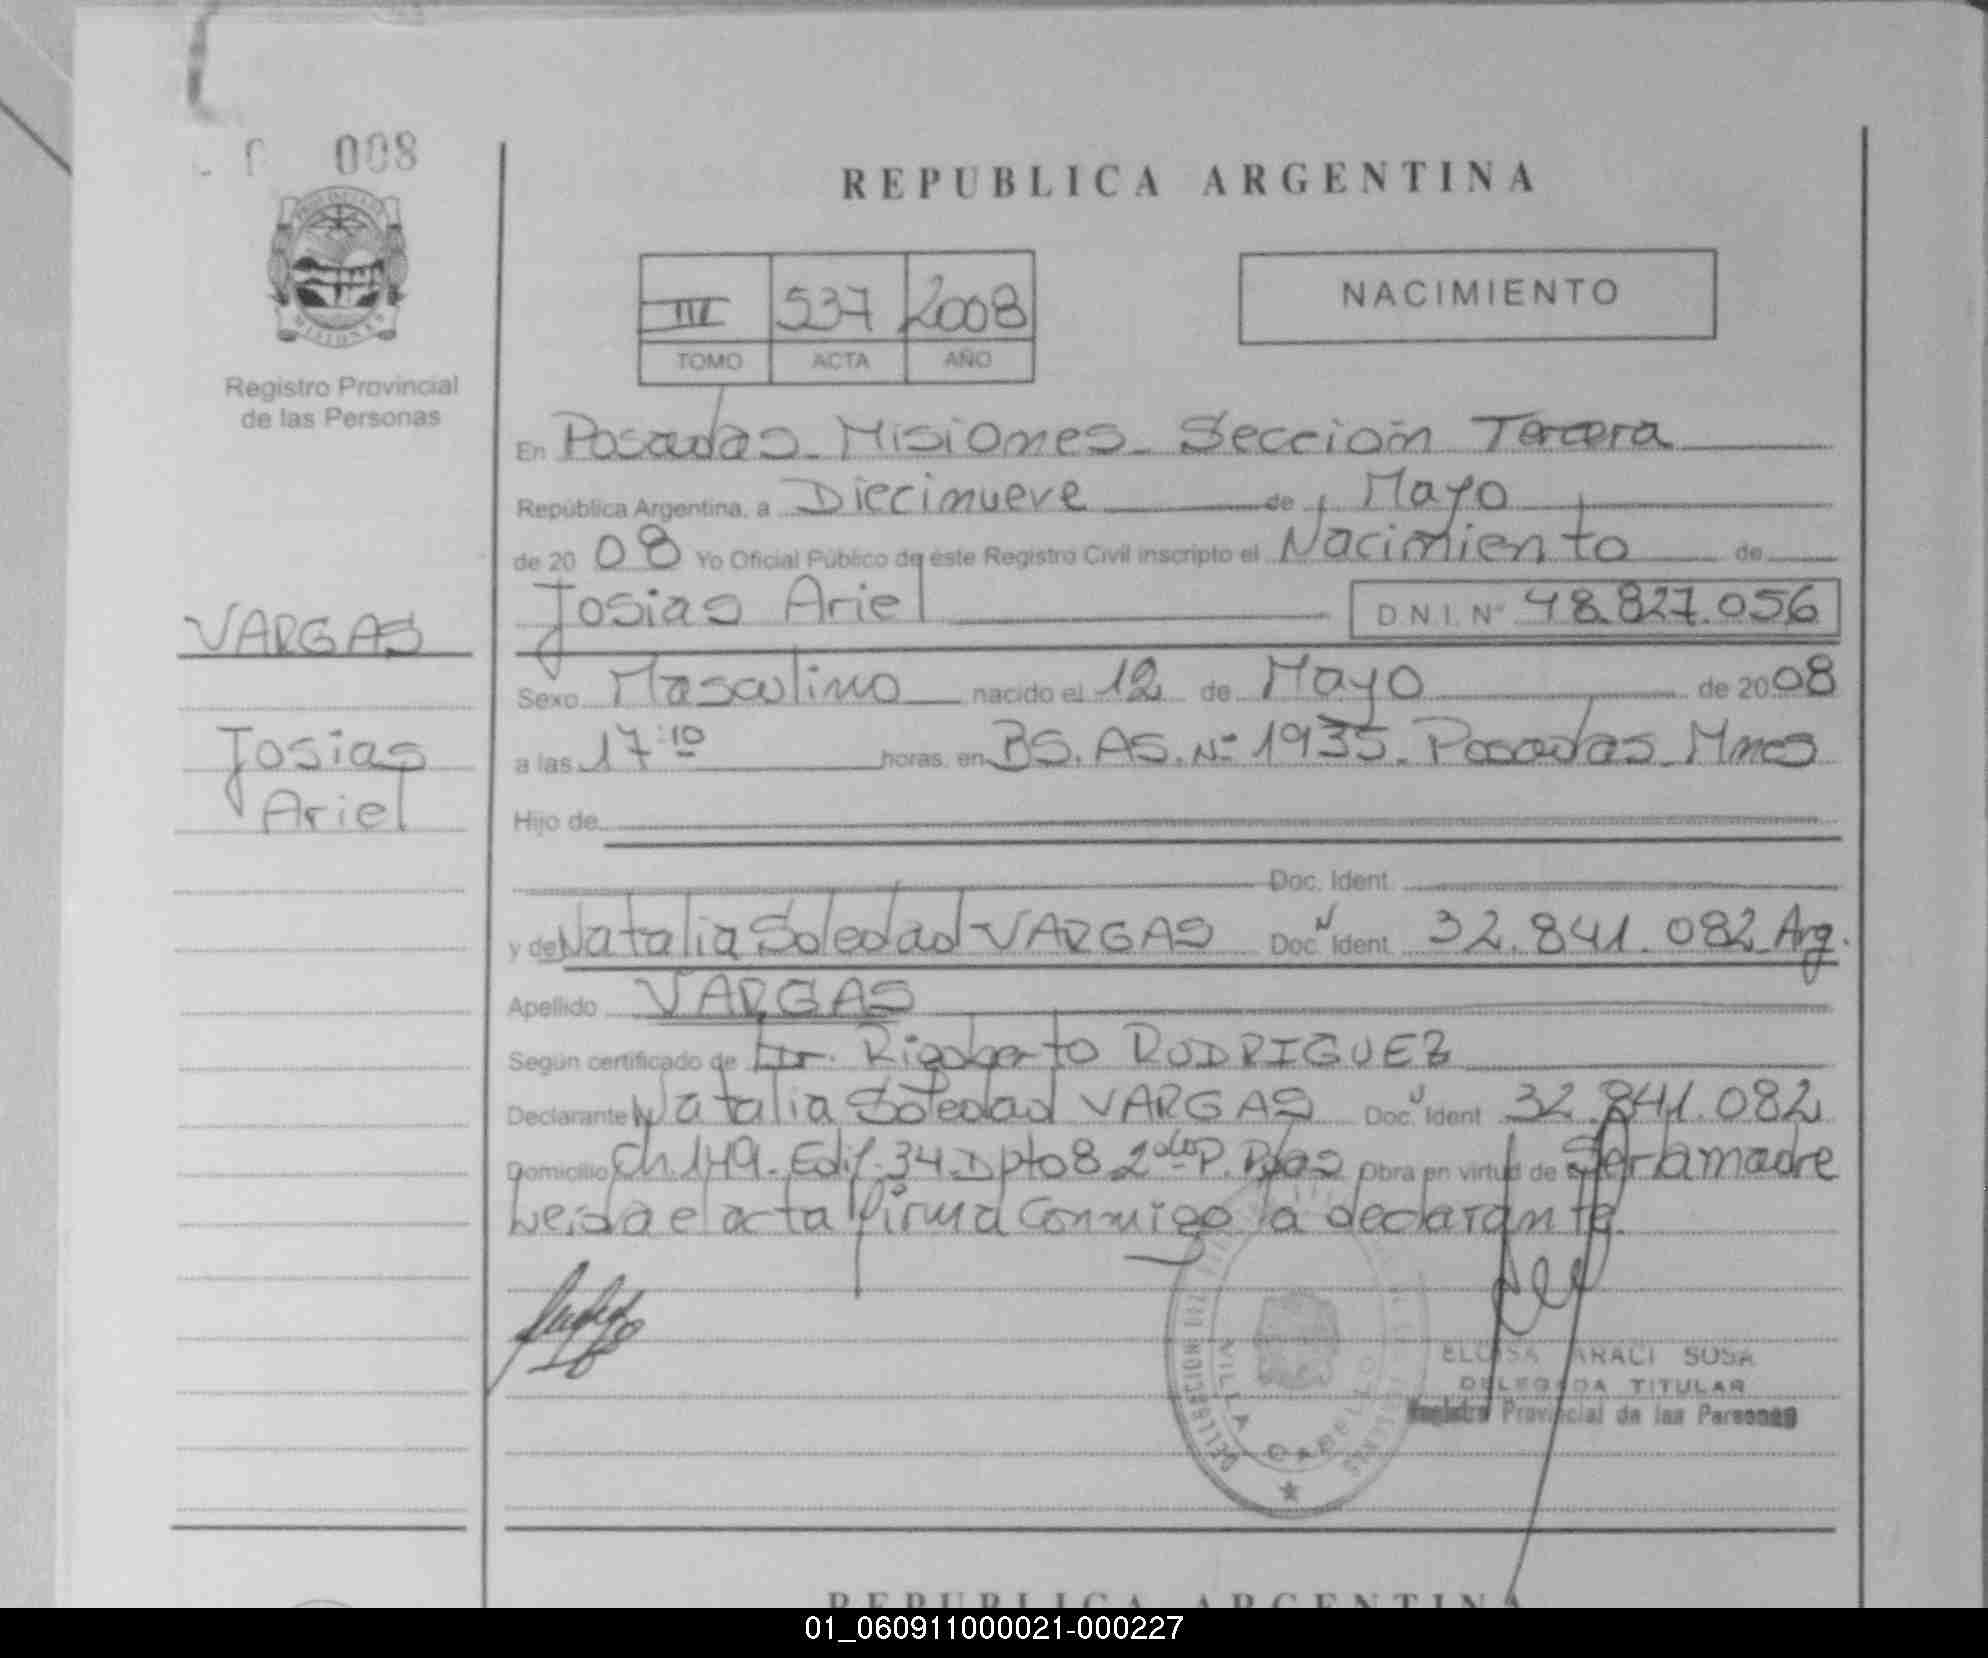 008
REPUBLICA ARGENTINA
III 537 2008
TOMO ACTA AÑO
NACIMIENTO
MISIONES
Registro Provincial
de las Personas
VARGAS
Josias
Ariel
En Posadas Misiones Sección Tercera
República Argentina, a Diecinueve de Mayo
de 2008 Yo Oficial Público de éste Registro Civil inscripto el Nacimiento de
Josias Ariel D.N.I. Nº 48.827.056
Sexo Masculino nacido el 12 de Mayo de 2008
a las 17:10 horas, en BS.AS. Nº 1935. Posadas Mnes
Hijo de
Doc. Ident.
y de Natalia Soledad VARGAS Doc. Ident. 32.841.082 Arg.
Apellido VARGAS
Según certificado de Dr. Rigoberto RODRIGUEZ
Declarante Natalia Soledad VARGAS Doc. Ident 32.841.082
Domicilio Ch.149. Edif. 34 Dpto 8 2do P. Pdas Obra en virtud de Ser la madre
Leida el acta firma Conmigo la declarante.
DELEGACION
VILLA CABELLO
ELOISA ARACI SOSA
DELEGADA TITULAR
Registro Provincial de las Personas
REPUBLICA ARGENTINA
01_060911000021-000227